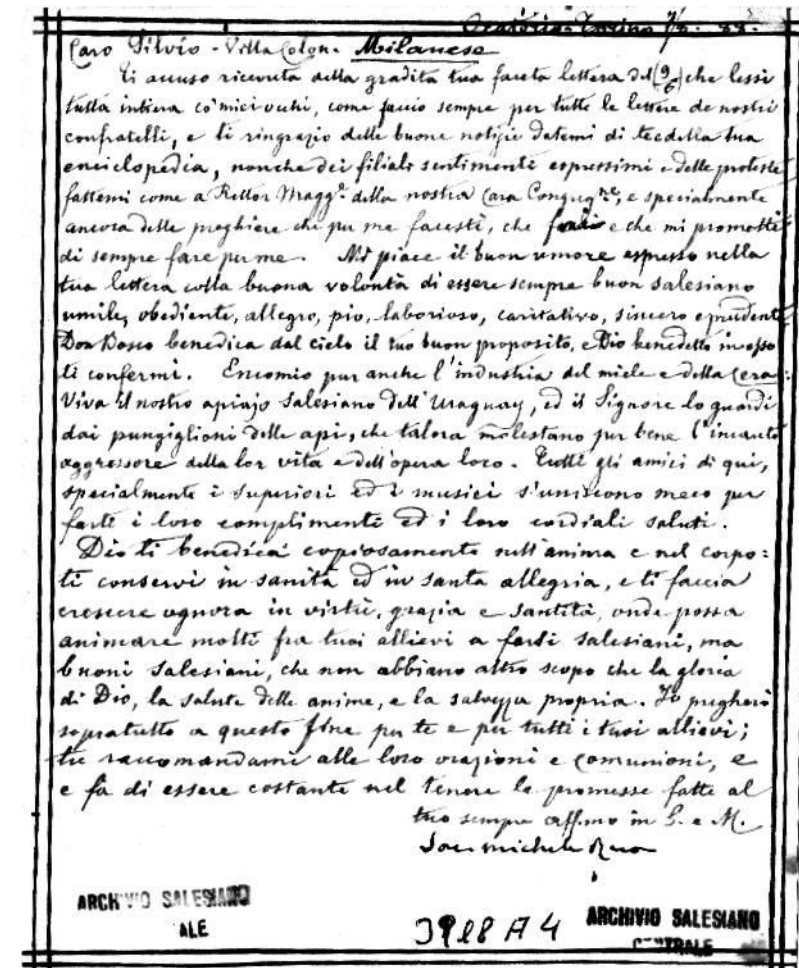 Oratorio - Torino 7/8. 88.
Caro Silvio - Villa Colon - Milanese
Ti accuso ricevuta della gradita tua faceta lettera del (9/6) che lessi
tutta intiera co' miei occhi, come faccio sempre per tutte le lettere de nostri
confratelli, e ti ringrazio delle buone notizie datemi di te e della tua
enciclopedia, nonche dei filiali sentimenti espressimi e delle proteste
fattemi come a Rettor Magg.e della nostra Cara Congreg.ne, e specialmente
ancora delle preghiere che per me facesti, che fai e che mi prometti
di sempre fare per me. Mi piace il buon umore espresso nella
tua lettera colla buona volontà di essere sempre buon Salesiano
umile, obediente, allegro, pio, laborioso, caritativo, sincero e prudente
Don Bosco benedica dal cielo il tuo buon proposito, e Dio benedetto in esso
ti confermi. Encomio pur anche l'industria del miele e della Cera.
Viva il nostro apiajo Salesiano dell'Uraguay, ed il Signore lo guardi
dai pungiglioni delle api, che talora molestano per bene l'incauto
aggressore della lor vita e dell'opera loro. Tutti gli amici di qui,
specialmente i Superiori ed i musici s'uniscono meco per
farti i loro complimenti ed i loro cordiali saluti.
Dio ti benedica copiosamente nell'anima e nel corpo:
ti conservi in sanità ed in santa allegria, e ti faccia
crescere ognora in virtù, grazia e Santità, onde possa
animare molti fra tuoi allievi a farsi Salesiani, ma
buoni Salesiani, che non abbiano altro scopo che la gloria
di Dio, la salute delle anime, e la salvezza propria. Io pregherò
sopratutto a questo fine per te e per tutti i tuoi allievi;
tu raccomandami alle loro orazioni e Comunioni, e
e fa di essere costante nel tenere le promesse fatte al
tuo sempre aff.mo in G. e M.
Sac. Michele Rua
ARCHIVIO SALESIANO
ALE
3988 A 4
ARCHIVIO SALESIANO
CENTRALE